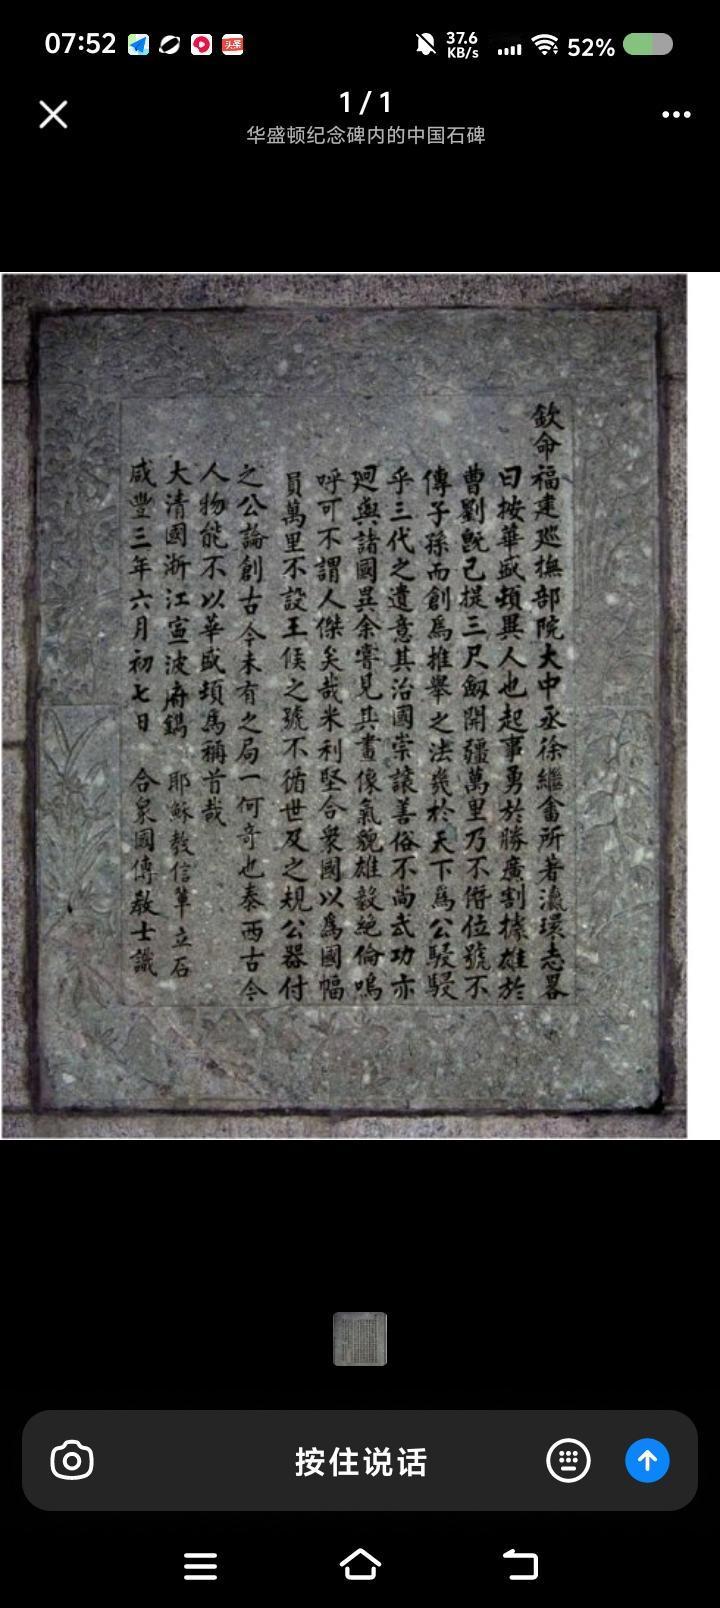 07:52
头条
37.6
KB/s
52%
1 / 1
华盛顿纪念碑内的中国石碑
欽命福建廵撫部院大中丞徐繼畬所著瀛環志畧
曰按華盛頓異人也起事勇於勝廣割據雄於
曹劉旣己提三尺劔開疆萬里乃不僭位號不
傳子孫而創爲推舉之法幾於天下爲公駸駸
乎三代之遺意其治國崇讓善俗不尚武功亦
廻與諸國異余嘗見其畫像氣貌雄毅絶倫嗚
呼可不謂人傑矣哉米利堅合衆國以爲國幅
員萬里不設王侯之號不循世及之規公器付
之公論創古今未有之局一何奇也泰西古今
人物能不以華盛頓爲稱首哉
大清國浙江寧波府鐫 耶穌教信軰立石
咸豐三年六月初七日 合衆國傳教士識
按住说话